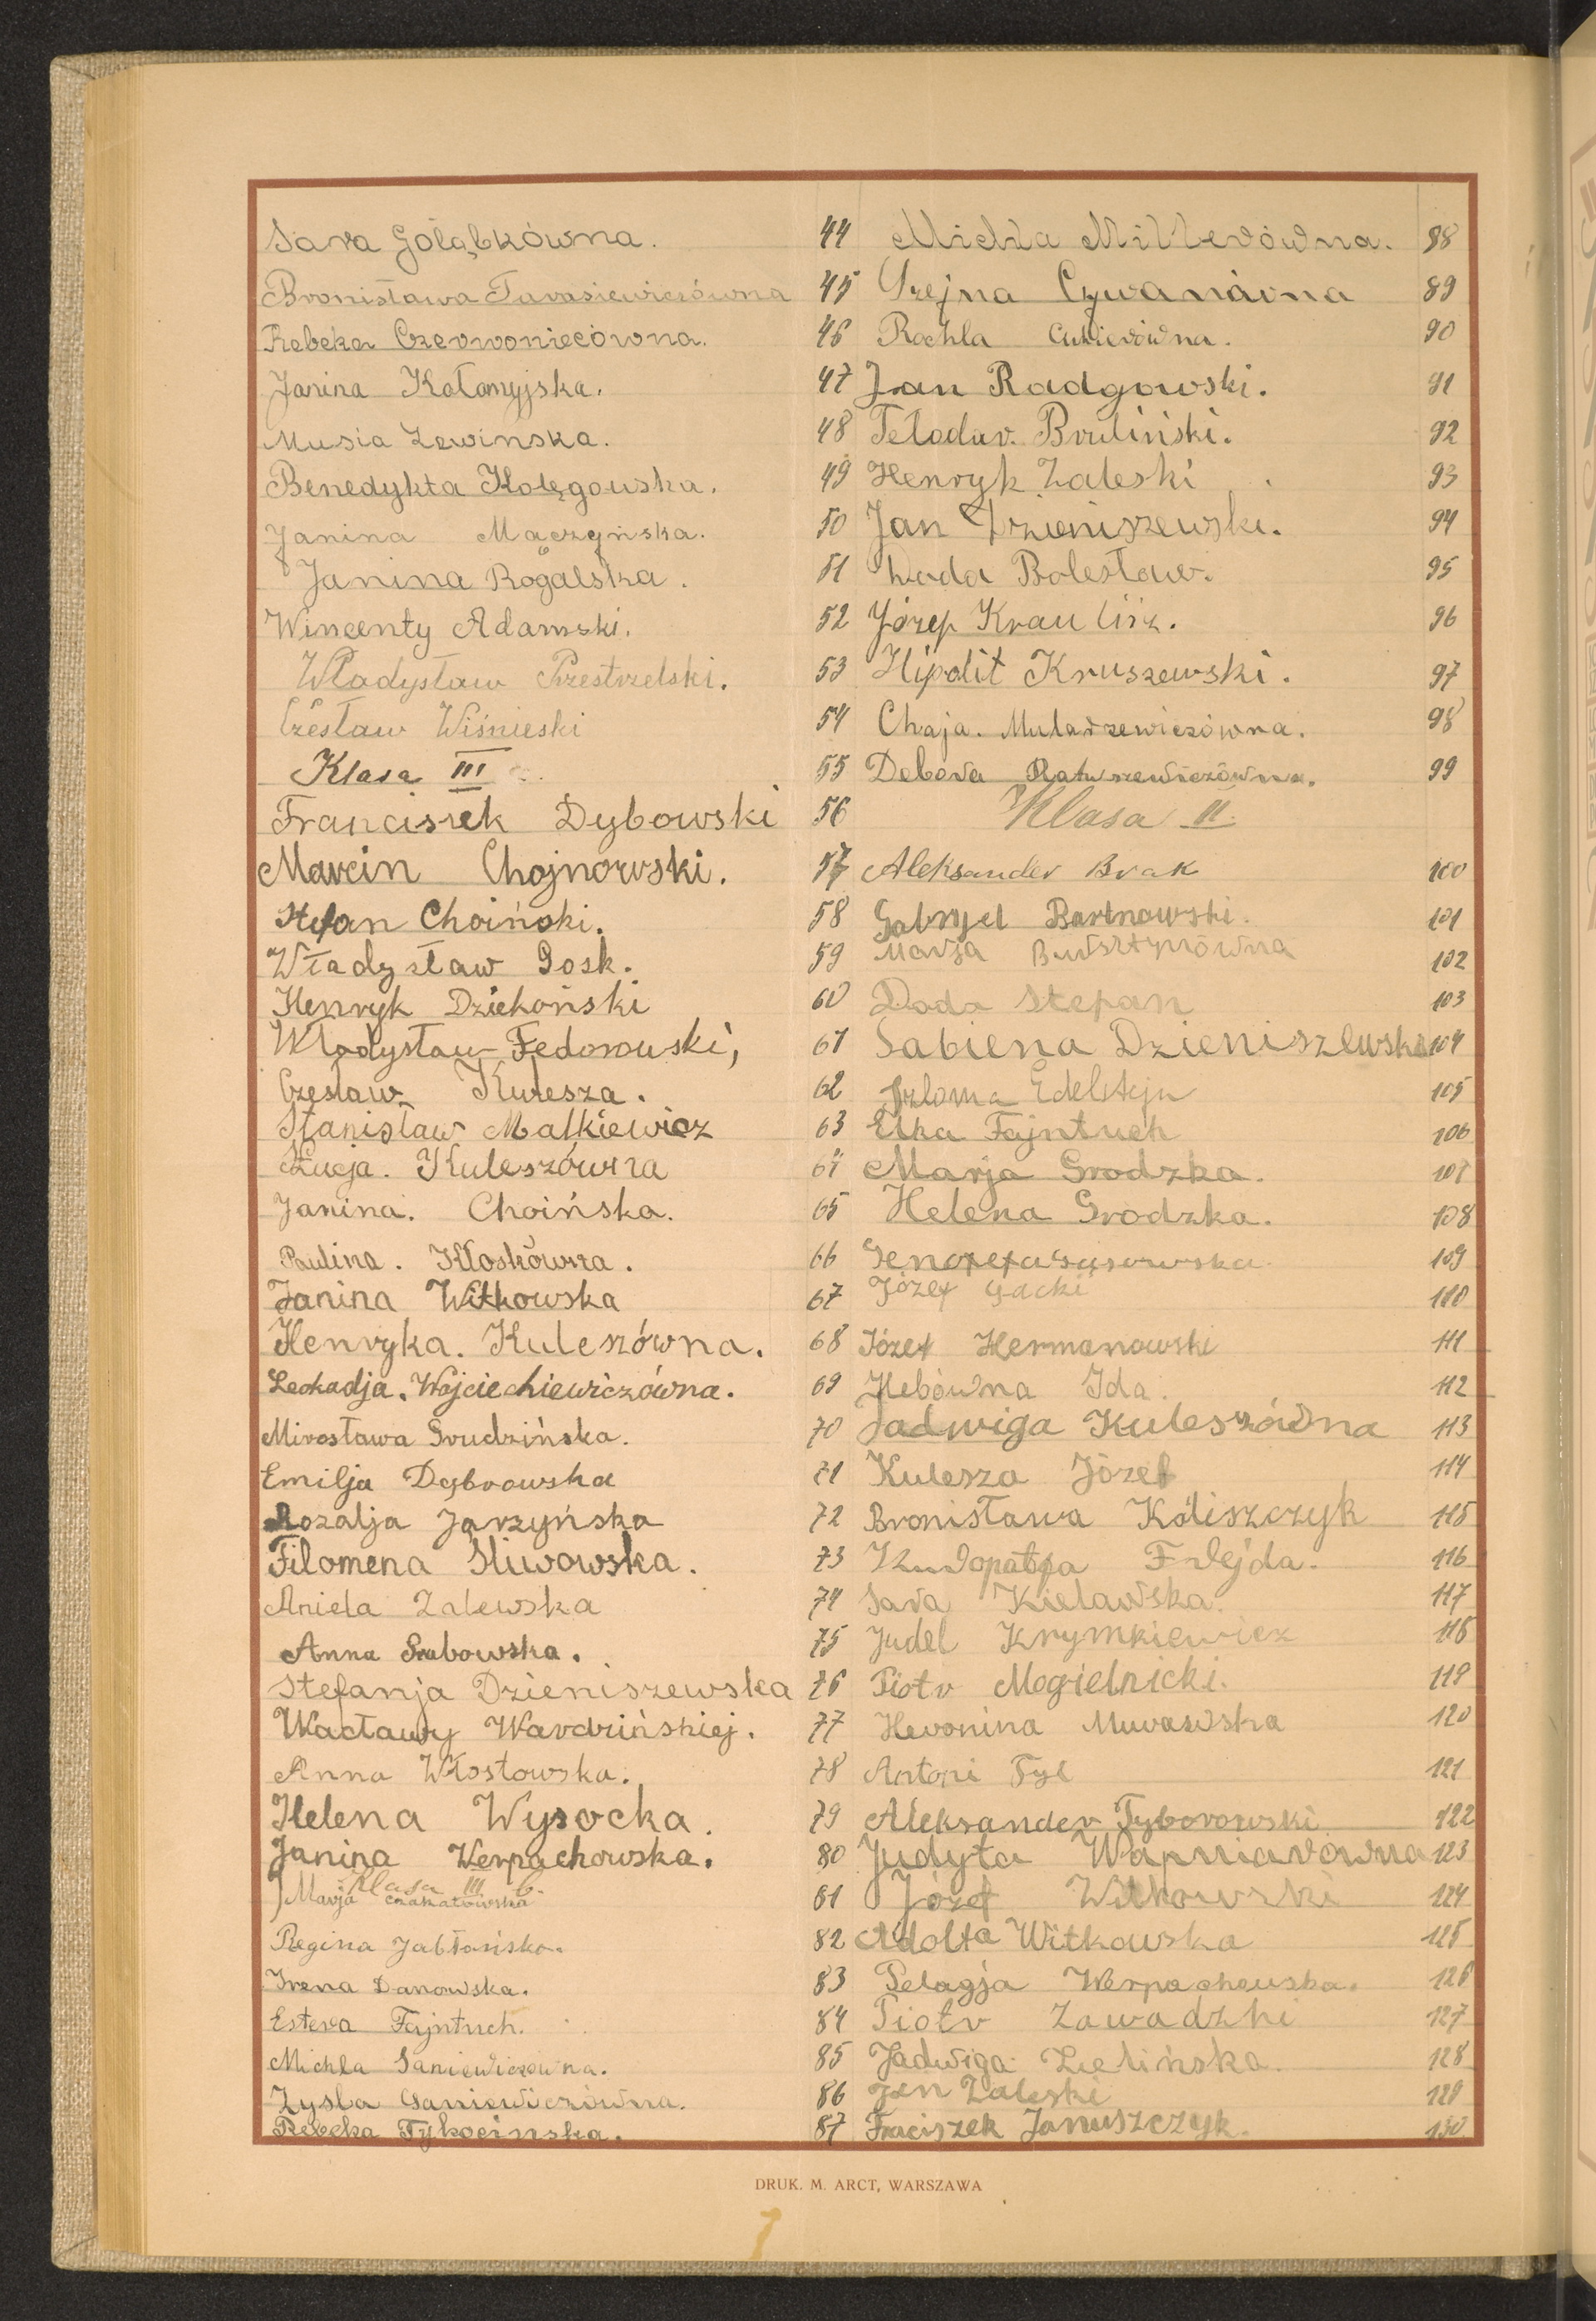 Sara Gołąbkówna. 44
Bronisława Tarasiewiczówna 45
Rebeka Czerwoniecówna. 46
Janina Kołomyjska. 47
Musia Lewinska. 48
Benedykta Kołęgowska. 49
Janina Mączyńska. 50
Janina Rogalska. 51
Wincenty Adamski. 52
Władysław Przestrzelski. 53
Czesław Wiśnieski 54
Klasa III 55
Franciszek Dybowski 56
Marcin Chojnowski. 57
Stefan Choiński. 58
Władysław Gosk. 59
Henryk Dziekoński 60
Władysław Fedorowski, 61
Czesław Kulesza. 62
Stanisław Malkiewicz 63
Łucja. Kuleszówna 64
Janina. Choińska. 65
Paulina. Kłoskówna. 66
Janina Witkowska 67
Henryka. Kuleszówna. 68
Leokadja. Wojciechiewiczówna. 69
Mirosława Grudzińska. 70
Emilja Dąbrowska 71
Rozalja Jarzyńska 72
Filomena Śliwowska. 73
Aniela Zalewska 74
Anna Grabowska. 75
Stefanja Dzieniszewska 76
Wacławy Wardzińskiej. 77
Anna Włostowska. 78
Helena Wysocka. 79
Janina Werpachowska. 80
Klasa III b.
Marja 81
Regina Jabłońska. 82
Irena Danowska. 83
Estera Fajntuch. 84
Michla Saniewiczówna. 85
Zysla Saniewiczówna. 86
Rebeka Tykocinska. 87
Michla Millerówna. 88
Szejna 89
Rochla Cukierówna. 90
Jan Radgowski. 91
Bruliński. 92
Henryk Zaleski 93
Jan Dzieniszewski. 94
Dada Bolesław. 95
Józef 96
Hipolit Kruszewski. 97
Chaja. Mularzewiczówna. 98
Debora Ratuszewiczówna. 99
Klasa II.
Aleksander Brak 100
Gabryel Bartnowski. 101
Marja Bursztynówna 102
Dada Stefan 103
Sabiena Dzieniszewska 104
Szloma Edelstejn 105
Elka Fajntuch 106
Marja Grodzka. 107
Helena Grodzka. 108
Genofefa Gąsowska. 109
Józef Gacki 110
Józef Hermanowski 111
Hebówna Ida. 112
Jadwiga Kuleszówna 113
Kulesza Józef 114
Bronisława Koliszczyk 115
Frejda. 116
Sara Kielawska. 117
Judel Krymkiewicz 118
Piotr Mogielnicki. 119
Heronina Murawska 120
Antoni Tyl 121
Aleksander Tyborowski 122
Judyta Wapniarówna 123
Józef Witkowski 124
Adolfa Witkowska 125
Pelagja Werpachowska. 126
Piotr Zawadzki 127
Jadwiga Zielińska. 128
Jan Zaleski 129
Fraciszek Januszczyk. 130
DRUK. M. ARCT, WARSZAWA